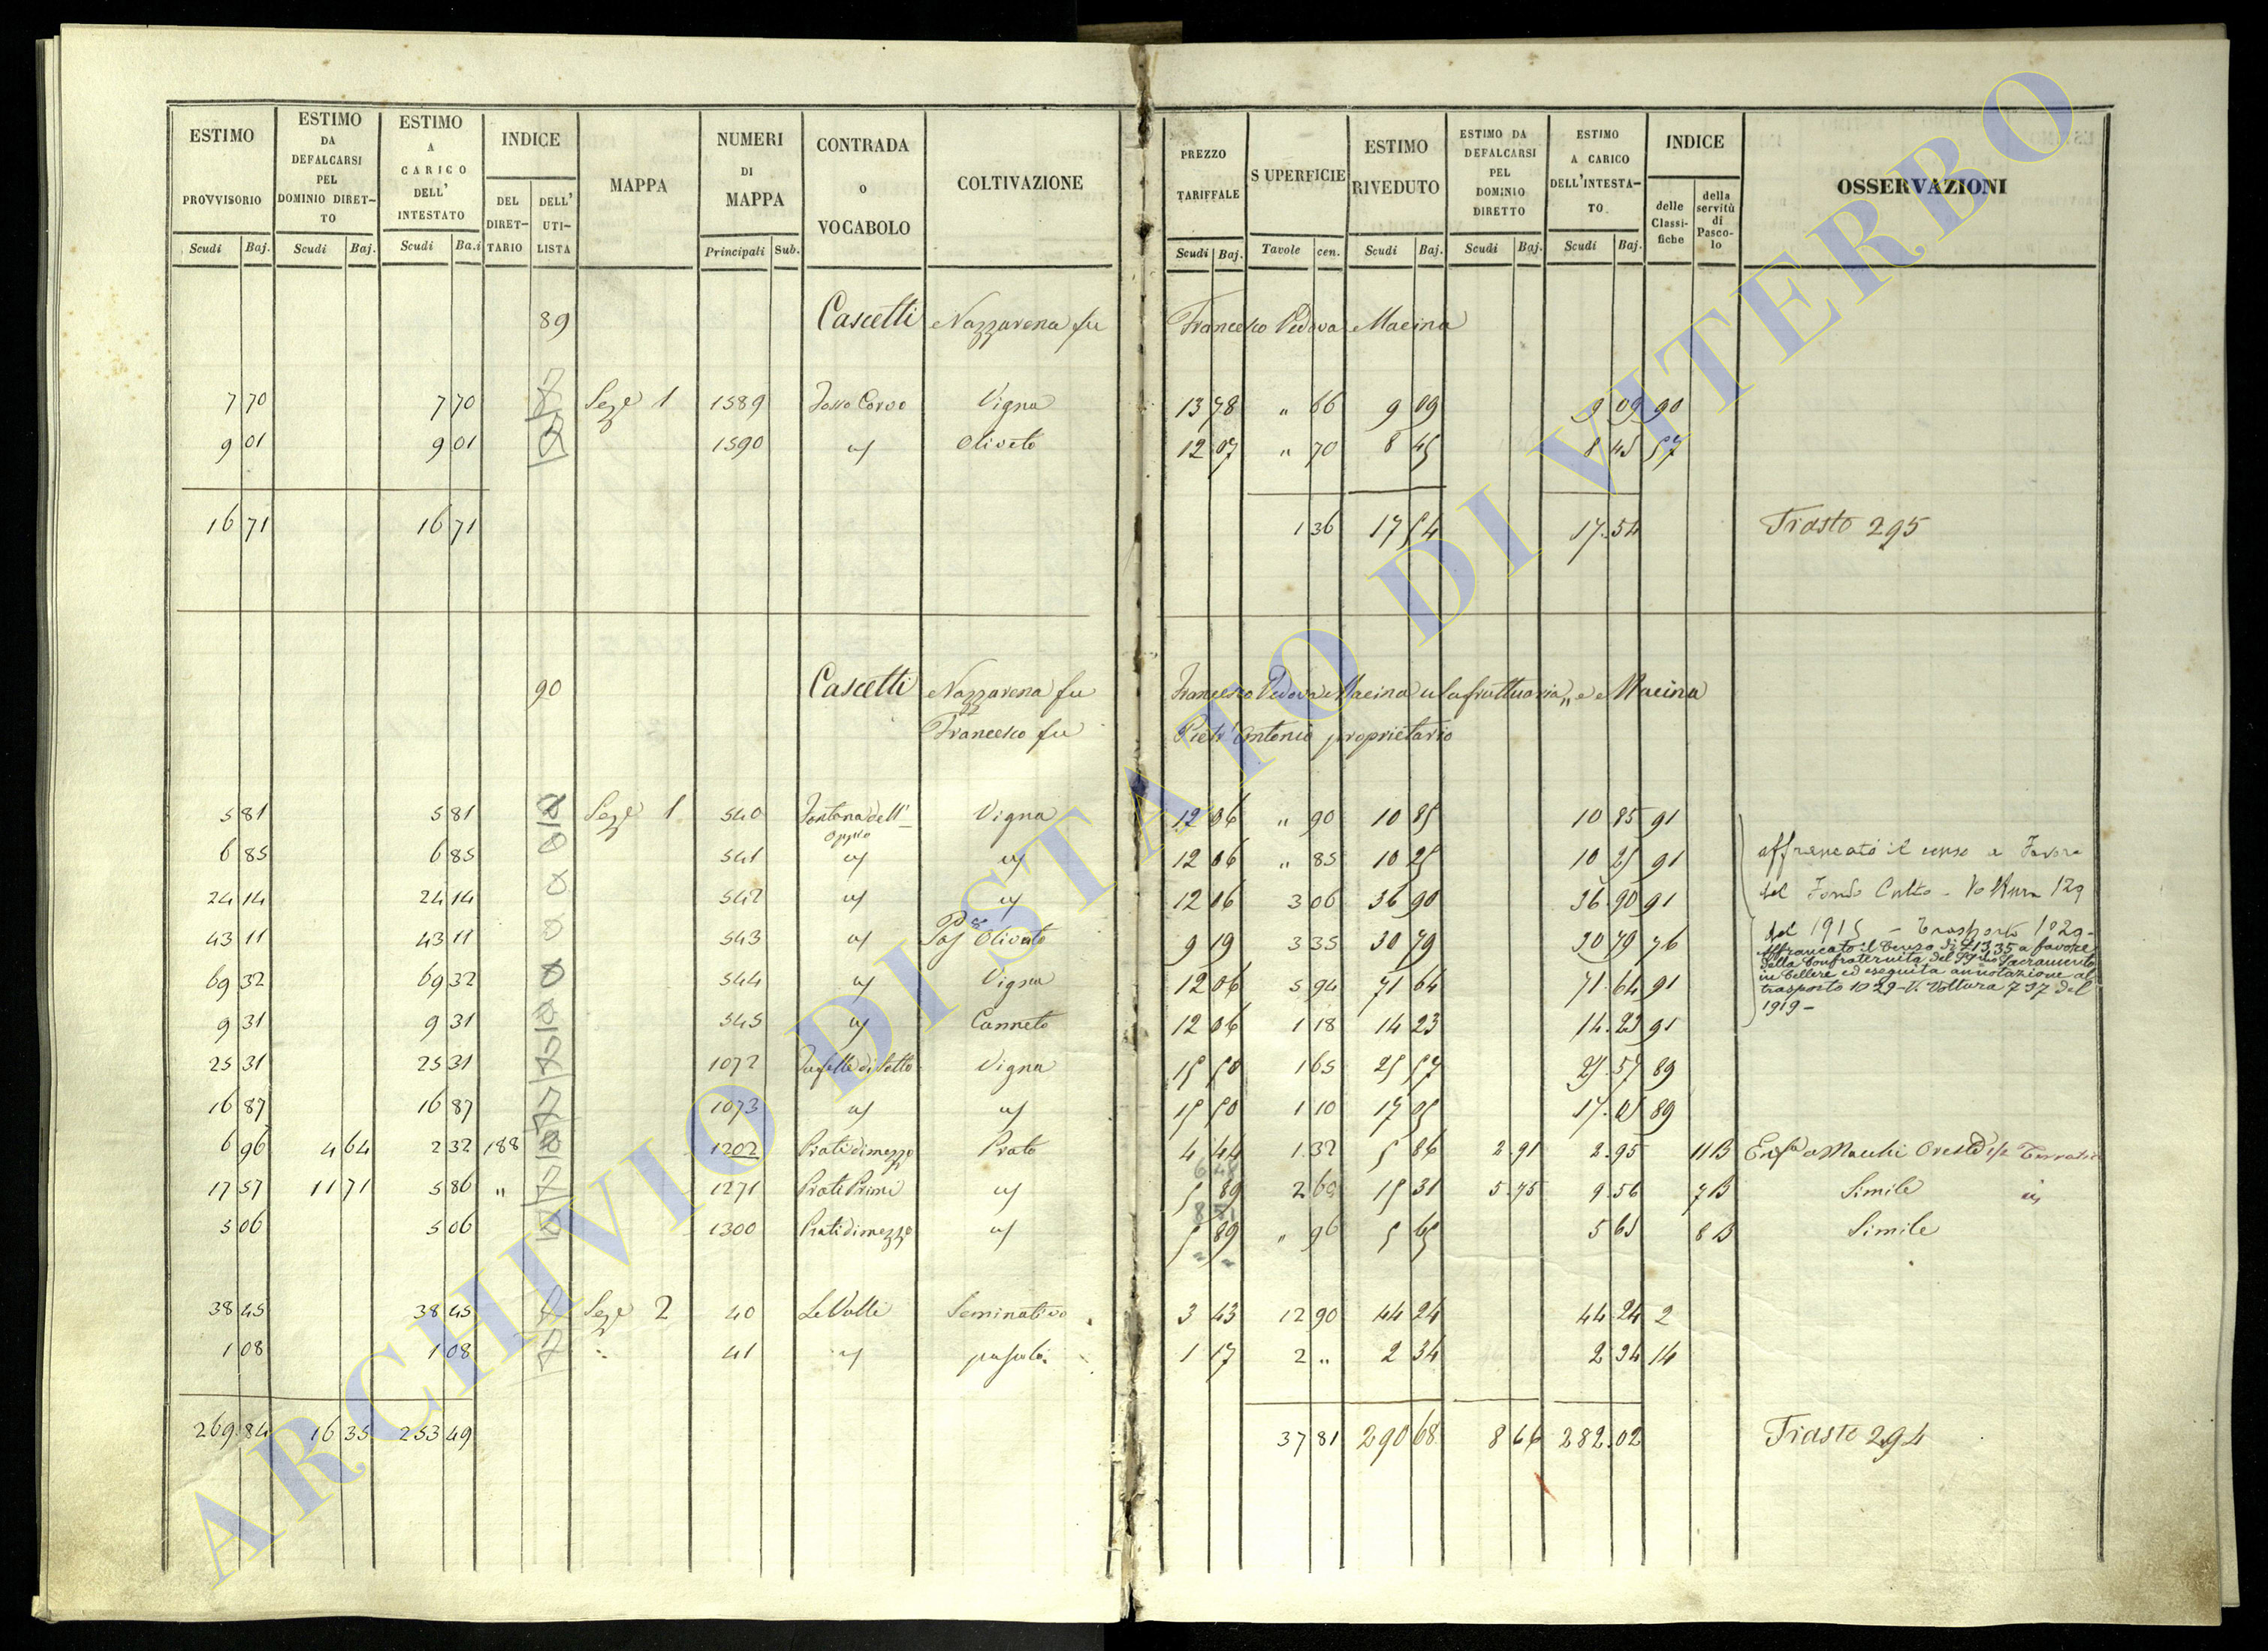 ESTIMO PROVVISORIO | ESTIMO DA DEFALCARSI PEL DOMINIO DIRET-TO | ESTIMO A CARICO DELL' INTESTATO | INDICE | MAPPA | NUMERI DI MAPPA | CONTRADA o VOCABOLO | COLTIVAZIONE | PREZZO TARIFFALE | SUPERFICIE | ESTIMO RIVEDUTO | ESTIMO DA DEFALCARSI PEL DOMINIO DIRETTO | ESTIMO A CARICO DELL'INTESTA-TO. | INDICE | OSSERVAZIONI
DEL DIRET-TARIO | DELL' UTI-LISTA | delle Classi-fiche | della servitù di Pasco-lo
Scudi | Baj. | Scudi | Baj. | Scudi | Ba.i | Principali | Sub. | Scudi | Baj. | Tavole | cen. | Scudi | Baj. | Scudi | Baj. | Scudi | Baj.
89 Cascetti Nazzarena fu Francesco Vedova Macina
7 70 | 7 70 | Seze 1 | 1589 | Fosso Corvo | Vigna | 13 78 | " 66 | 9 09 | 9 09 | 90
9 01 | 9 01 | 1590 | " | Oliveto | 12 07 | " 70 | 8 45 | 8 45 | 57
16 71 | 16 71 | 1 36 | 17 54 | 17.54 | Trasto 295
90 Cascetti Nazzarena fu Francesco Vedova Macina usufruttuaria, e Macina
Francesco fu Pietr'Antonio proprietario
5 81 | 5 81 | Seze 1 | 540 | Fontana dell' Oppio | Vigna | 12 06 | " 90 | 10 85 | 10 85 | 91
6 85 | 6 85 | 541 | " | " | 12 06 | " 85 | 10 25 | 10 25 | 91
24 14 | 24 14 | 542 | " | " | 12 06 | 3 06 | 36 90 | 36.90 | 91
43 11 | 43 11 | 543 | " | Oliveto | 9 19 | 3 35 | 30 79 | 30 79 | 76
69 32 | 69 32 | 544 | " | Vigna | 12 06 | 5 94 | 71 64 | 71.64 | 91
9 31 | 9 31 | 545 | " | Canneto | 12 06 | 1 18 | 14 23 | 14.23 | 91
affrancato il censo a favore
del Fondo Culto - Voltura 129
del 1915 - Trasporto 1029-
Affrancato il Censo di £13,35 a favore
della Confraternita del SSmo Sacramento
in Cellere ed eseguita annotazione al
trasporto 1029 - V. Voltura 737 del
1919 -
25 31 | 25 31 | 1072 | Vigna | 15 50 | 1 65 | 25 57 | 25.57 | 89
16 87 | 16 87 | 1073 | " | " | 15 50 | 1 10 | 17 05 | 17.05 | 89
6 96 | 4 64 | 2 32 | 188 | 1202 | Prati di mezzo | Prato | 4 44 | 1.32 | 5 86 | 2.91 | 2.95 | 11 B | Macchi Oreste
17 57 | 11 71 | 5 86 | " | 1271 | Prati Primi | " | 5 89 | 2 60 | 15 31 | 5.75 | 9.56 | 7 B | Simile
5 06 | 5 06 | 1300 | Prati di mezzo | " | 5 89 | " 96 | 5 65 | 5 65 | 8 B | Simile
38 45 | 38 45 | Seze 2 | 40 | Le Valli | Seminativo | 3 43 | 12 90 | 44 24 | 44.24 | 2
1 08 | 1 08 | 41 | " | pascolo | 1 17 | 2 " | 2 34 | 2.34 | 14
269.84 | 16 35 | 253 49 | 37 81 | 290 68 | 8 66 | 282.02 | Trasto 294
ARCHIVIO DI STATO DI VITERBO